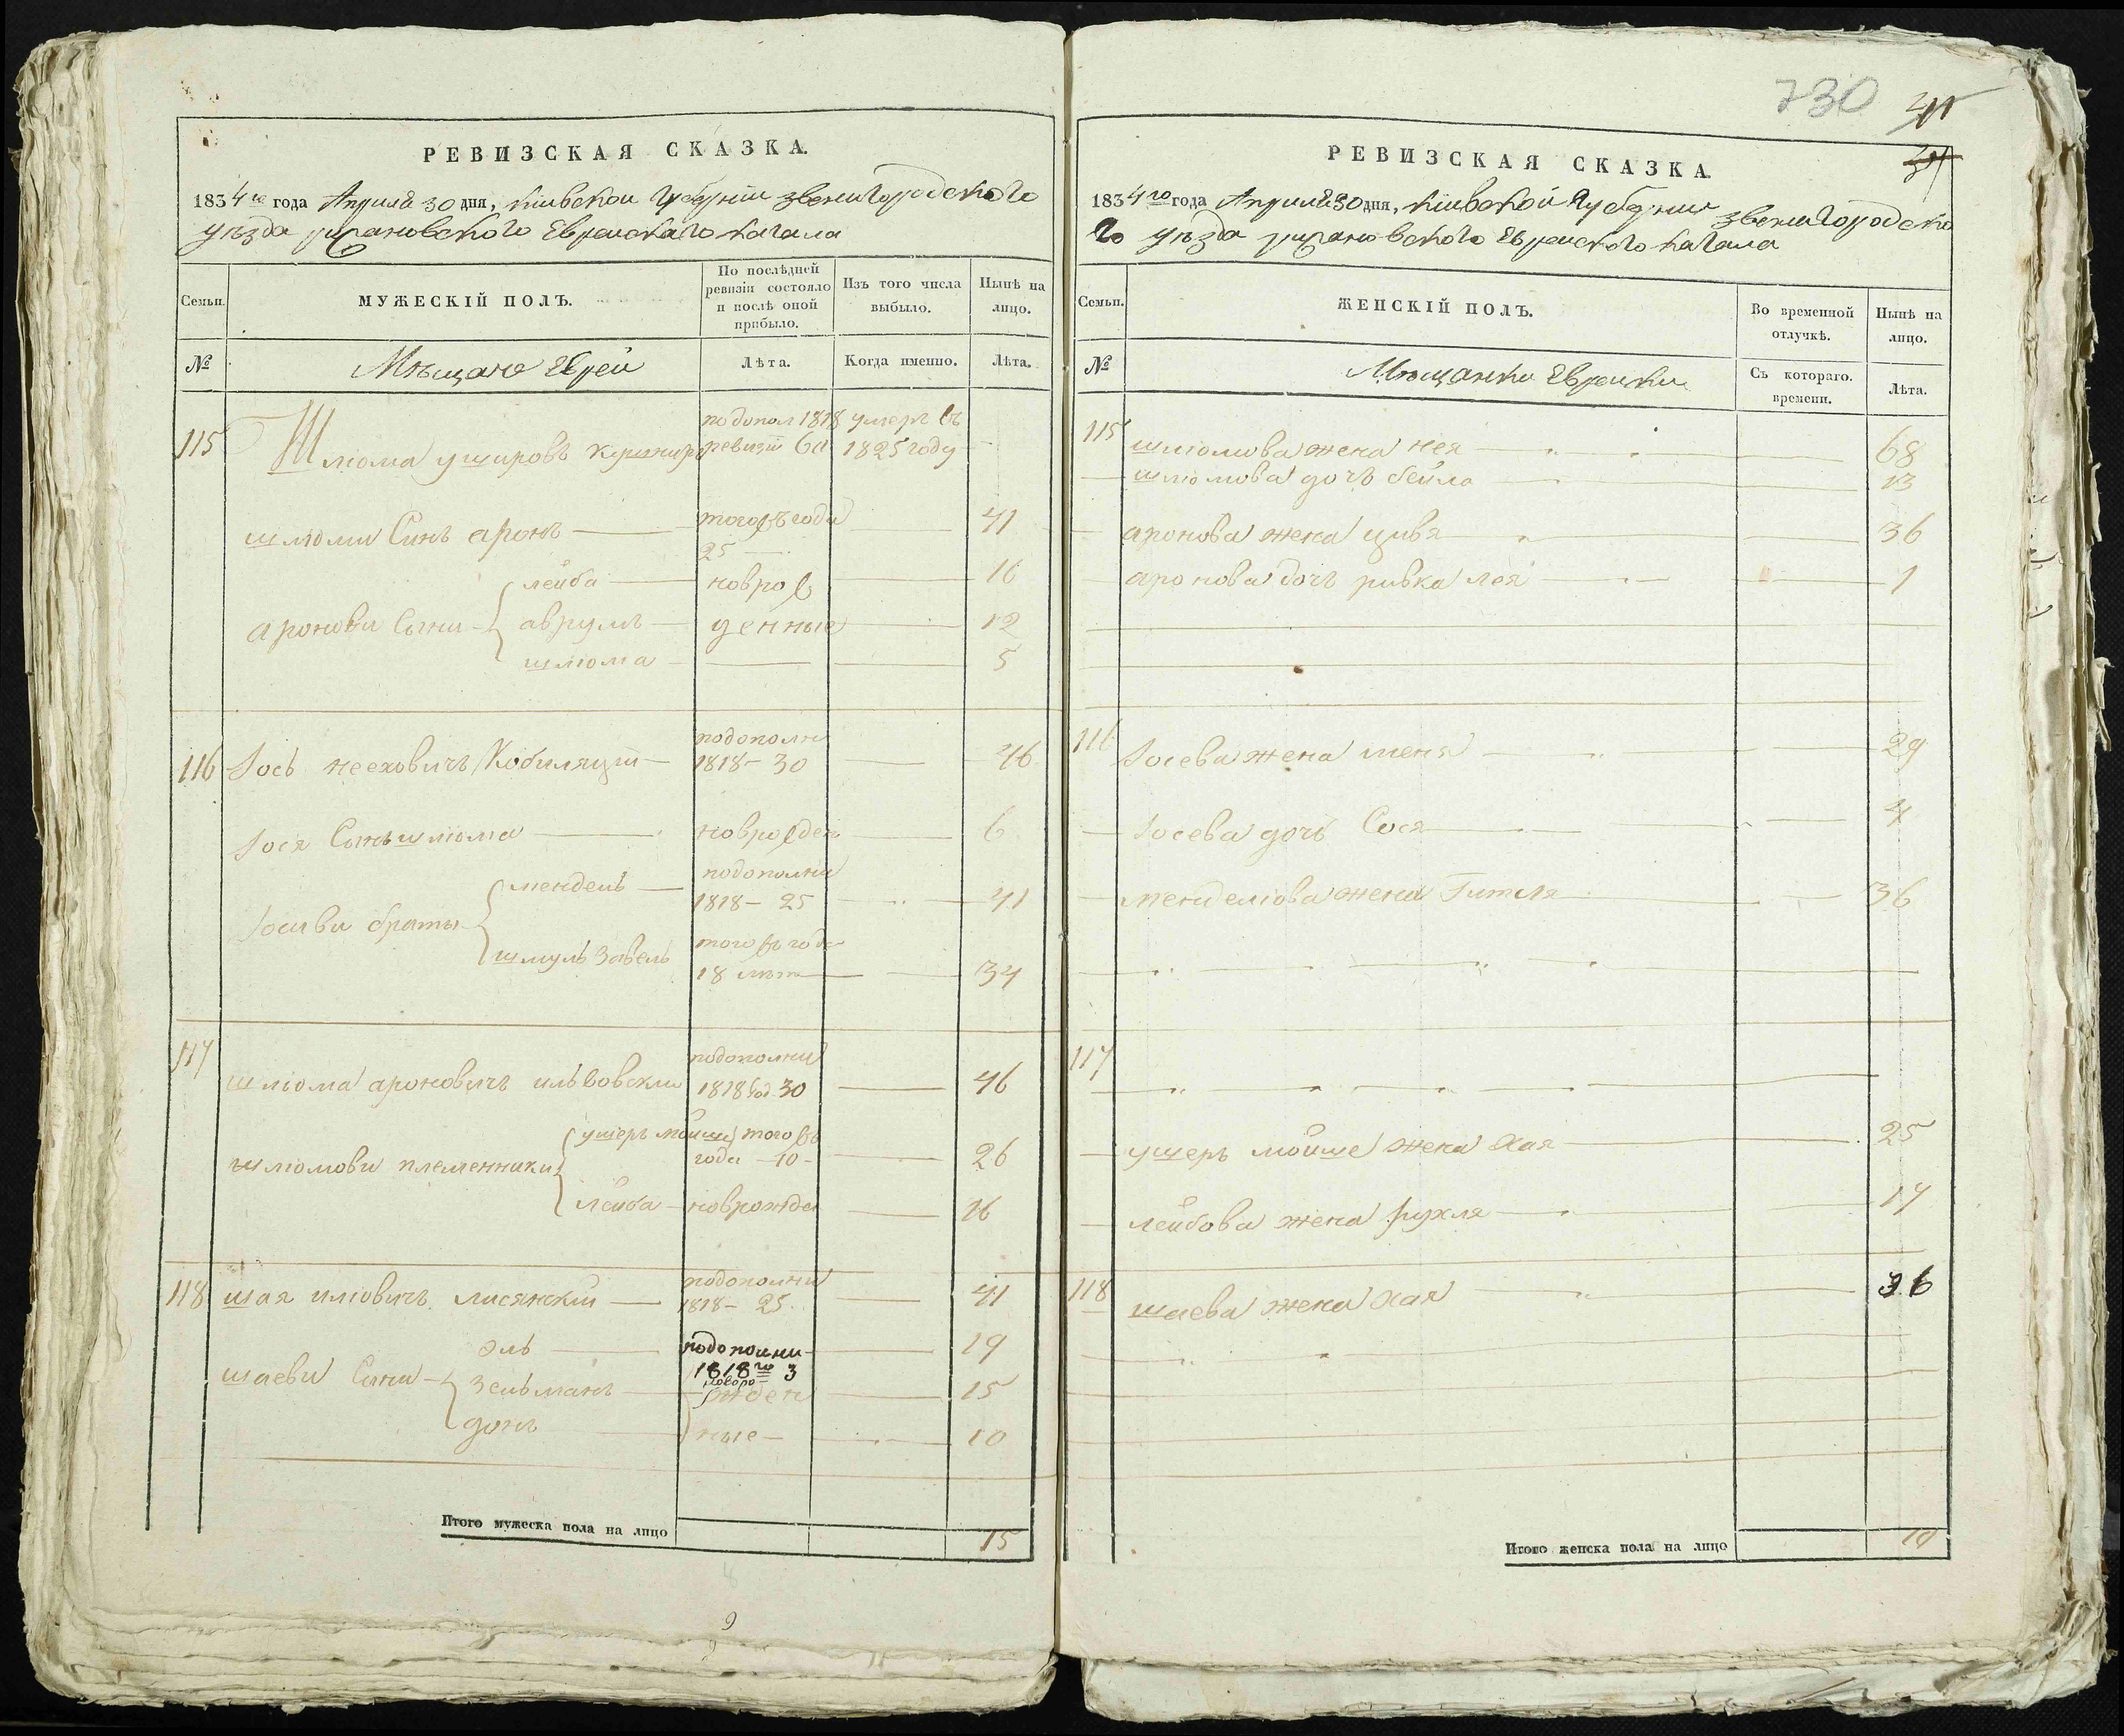 РЕВИЗСКАЯ СКАЗКА.
1834го года Априля 30 дня, Кіивской Губерніи Звенигородского
уѣзда рижановского Еврейскаго кагала
Семьи.
МУЖЕСКІЙ ПОЛЪ.
По послѣдней ревизіи состояло и послѣ оной прибыло.
Изъ того числа выбыло.
Нынѣ на лицо.
№
Мѣщане Евреи
Лѣта.
Когда именно.
Лѣта.
115 Шлюома ушировъ подопол 1818 ревизіи 60 умеръ въ 1825 году
шлюоми Синъ аронъ того въ года 25 41
лейба новро 16
Аронови Сыни аврумъ жденные 12
шлюома 5
116 Іось неехович Кобиляцкій подополн 1818 - 30 46
Іося Сынъ шлюома новрожден 6
мендель подополни 1818 - 25 41
Іосиви браты
шмуль завель того въ года 18 лѣт 34
117 шліома аронович ильвовскии подополни 1818 год 30 46
ушеръ мойше того въ года - 10 - 26
шлюомови племенники
лейба новрожден 16
118 шая иліович лисянский подополни 1818 - 25 41
эль подополни 1818го 3 19
шаеви Сини зельманъ новорожден 15
донъ ные 10
Итого мужеска пола на лицо 15
730
РЕВИЗСКАЯ СКАЗКА.
1834го года Априля 30 дня, Кіивской Губерніи Звенигородско
го уѣзда рижановского Еврейского кагала
Семьи.
ЖЕНСКІЙ ПОЛЪ.
Во временной отлучкѣ.
Нынѣ на лицо.
№
Мѣщанки Еврейки
Съ котораго времени.
Лѣта.
115 шлюомова жена нея 68
шлюомова дочъ бейла 13
аронова жена цивя 36
аронова дочъ ривка лея 1
116 Іосева жена меня 29
Іосева дочь Сося 4
менделюова жена Гитля 36
117
ушеръ мойше жена хая 25
лейбова жена рухля 17
118 шаева жена хая 36
Итого женска пола на лицо 10